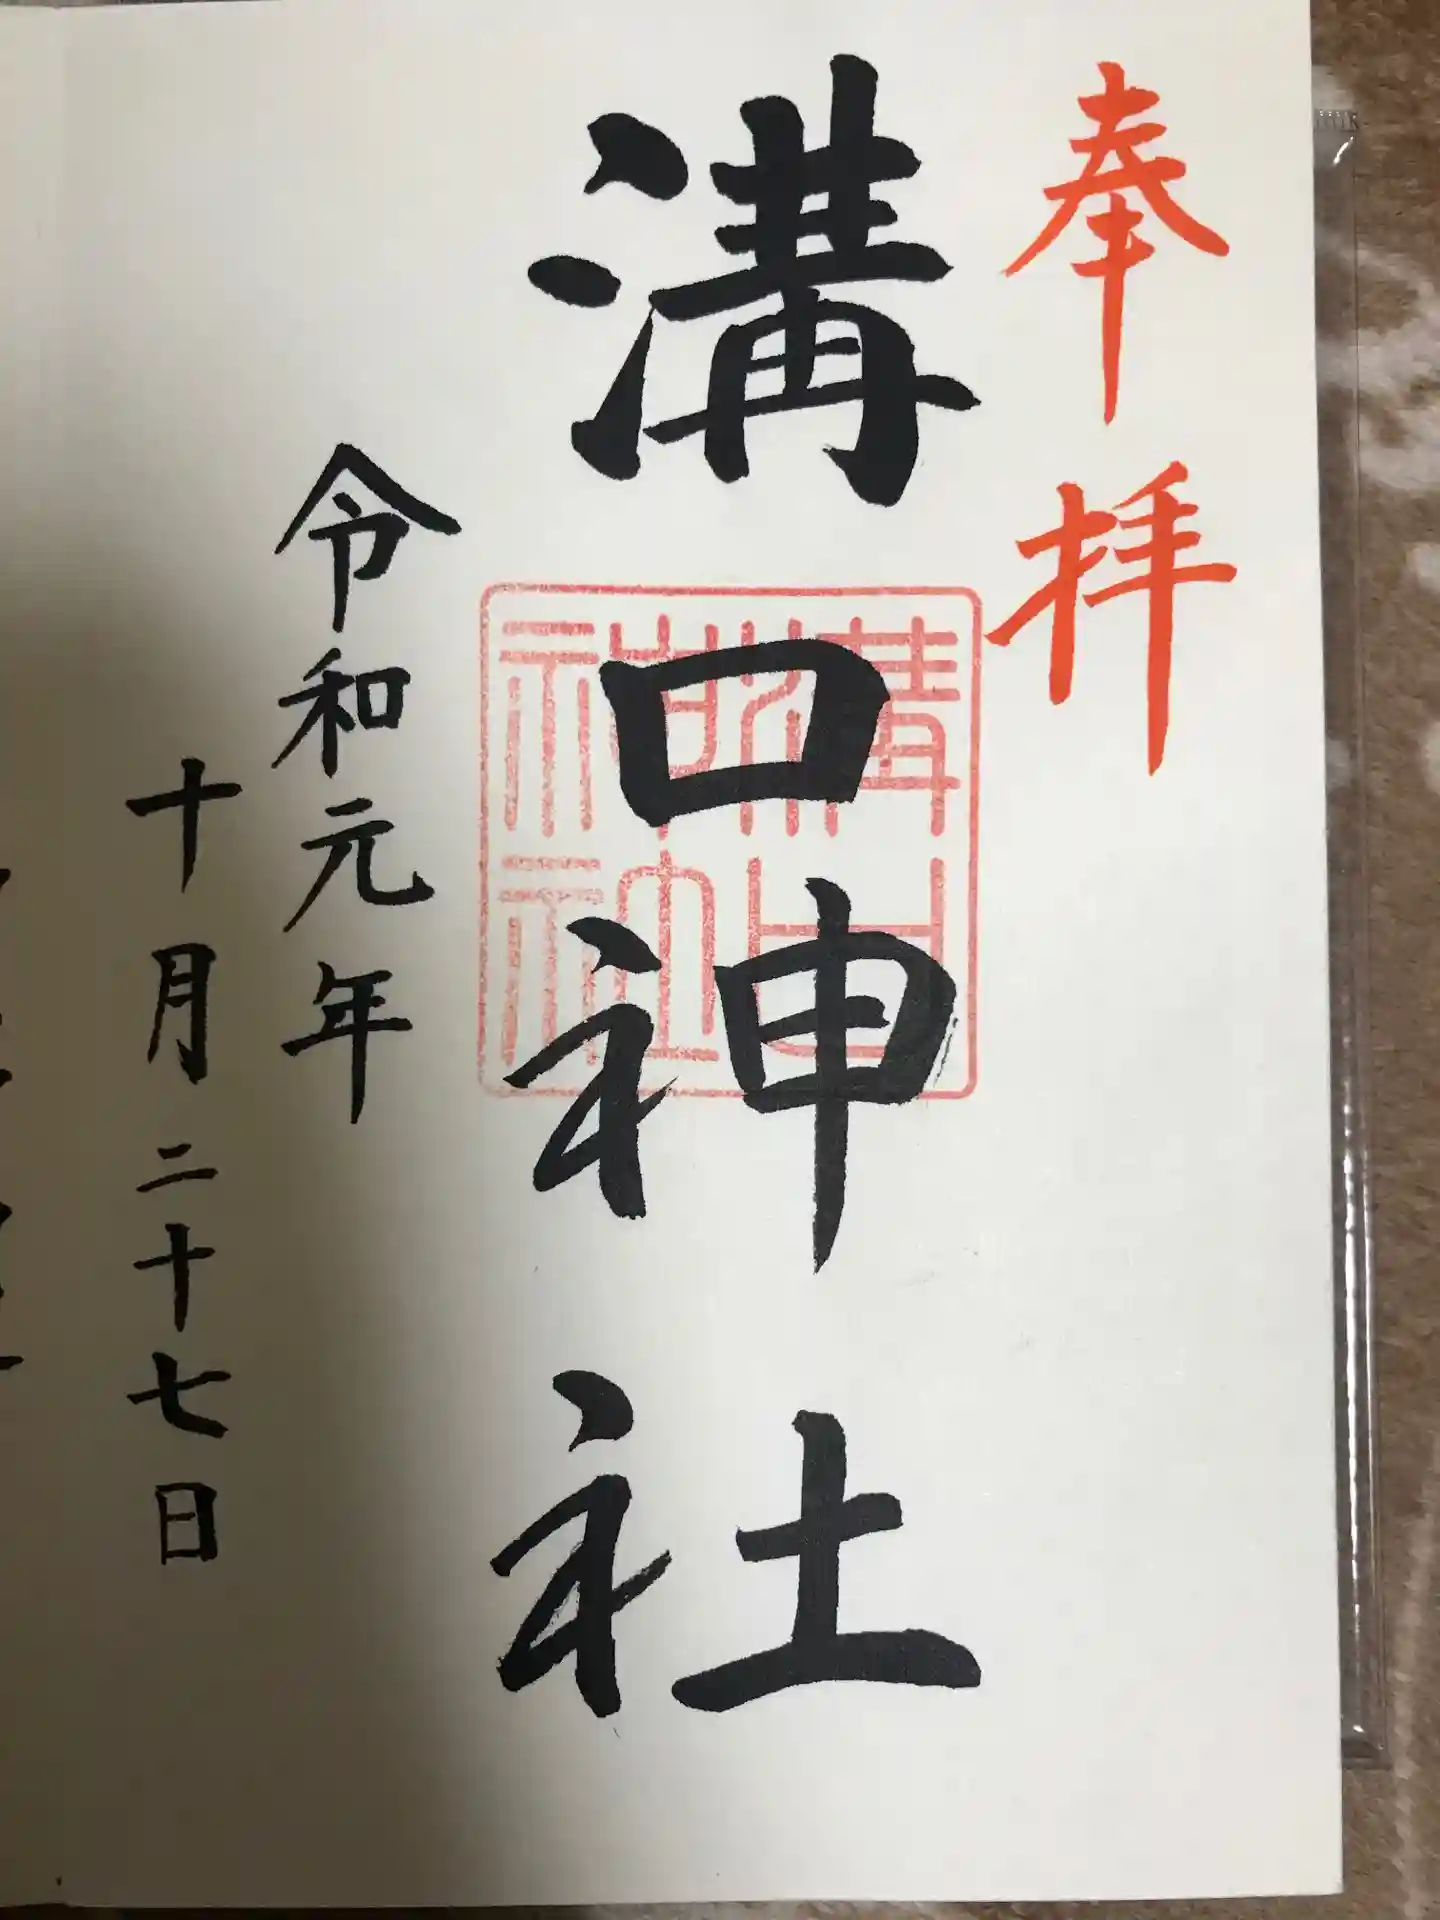 奉拝
溝口神社
溝口神社
令和元年
十月二十七日